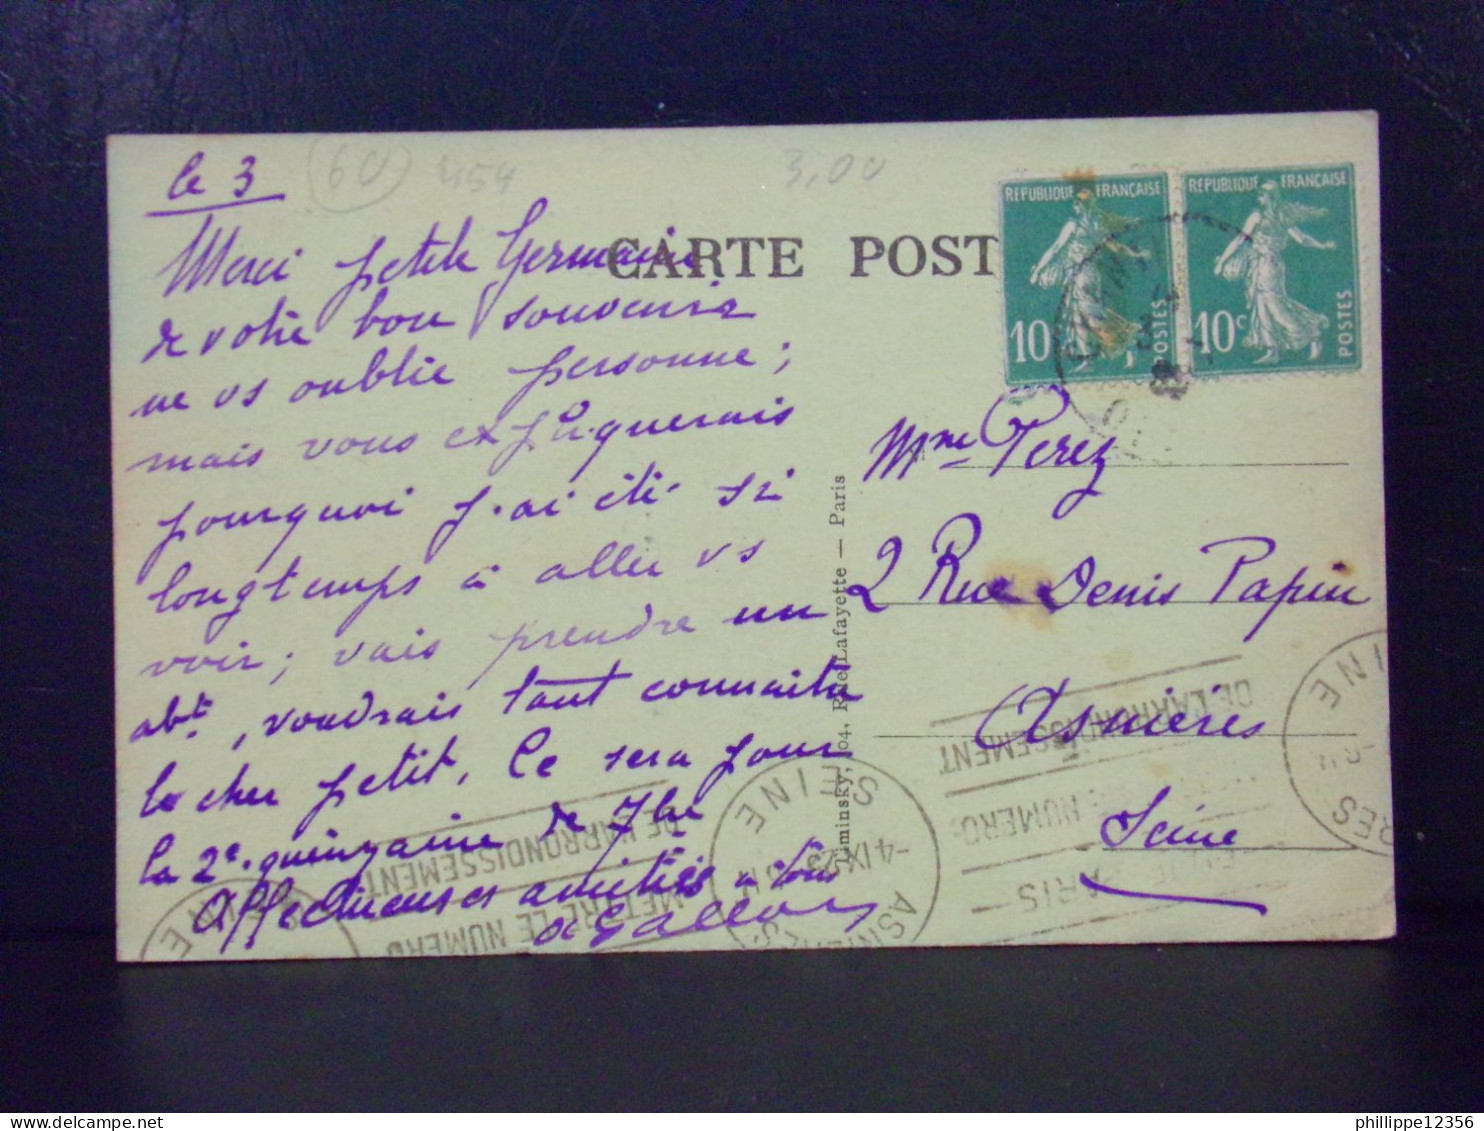 le 3
60
454
3,00
CARTE POST
Merci petite Germaine
de votre bon souvenir
ne vs oublie personne ;
mais vous expliquerais
pourquoi j'ai été si
longtemps à aller vs
voir ; vais prendre un
abt, voudrais tant connaitre
le cher petit. Ce sera pour
la 2e quinzaine de 7bre
Affectueuses amitiés a tous
REPUBLIQUE FRANÇAISE
10
POSTES
REPUBLIQUE FRANÇAISE
10c
POSTES
Mme Perez
2 Rue Denis Papin
Asnières
Seine
104, Rue Lafayette — Paris
METTRE LE NUMERO
DE L'ARRONDISSEMENT
SEINE
-4 IX
ASNIERES
NUMERO
DE L'ARRONDISSEMENT
PARIS
phillippe12356